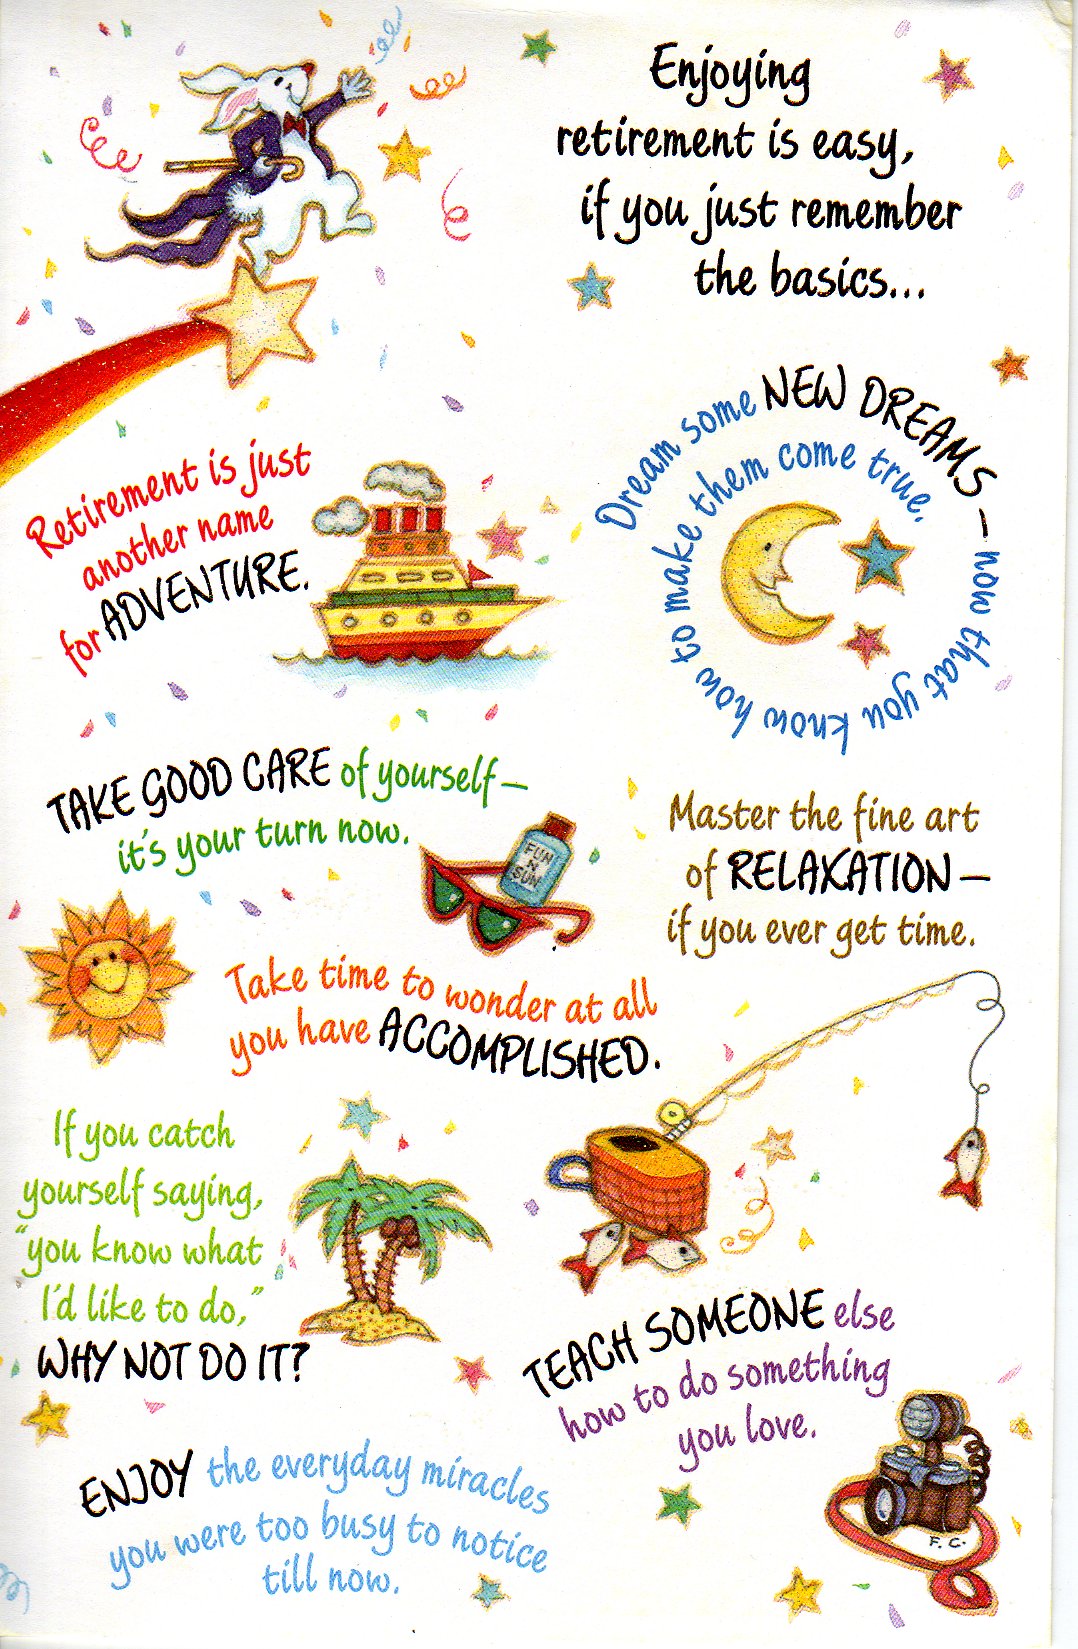 Enjoying
retirement is easy,
if you just remember
the basics...
Retirement is just
another name
for ADVENTURE.
Dream some NEW DREAMS – now that you know how to make them come true.
TAKE GOOD CARE of yourself –
it's your turn now.
FUN
N
SUN
Master the fine art
of RELAXATION –
if you ever get time.
Take time to wonder at all
you have ACCOMPLISHED.
If you catch
yourself saying,
"you know what
I'd like to do,"
WHY NOT DO IT?
TEACH SOMEONE else
how to do something
you love.
ENJOY the everyday miracles
you were too busy to notice
till now.
F.C.